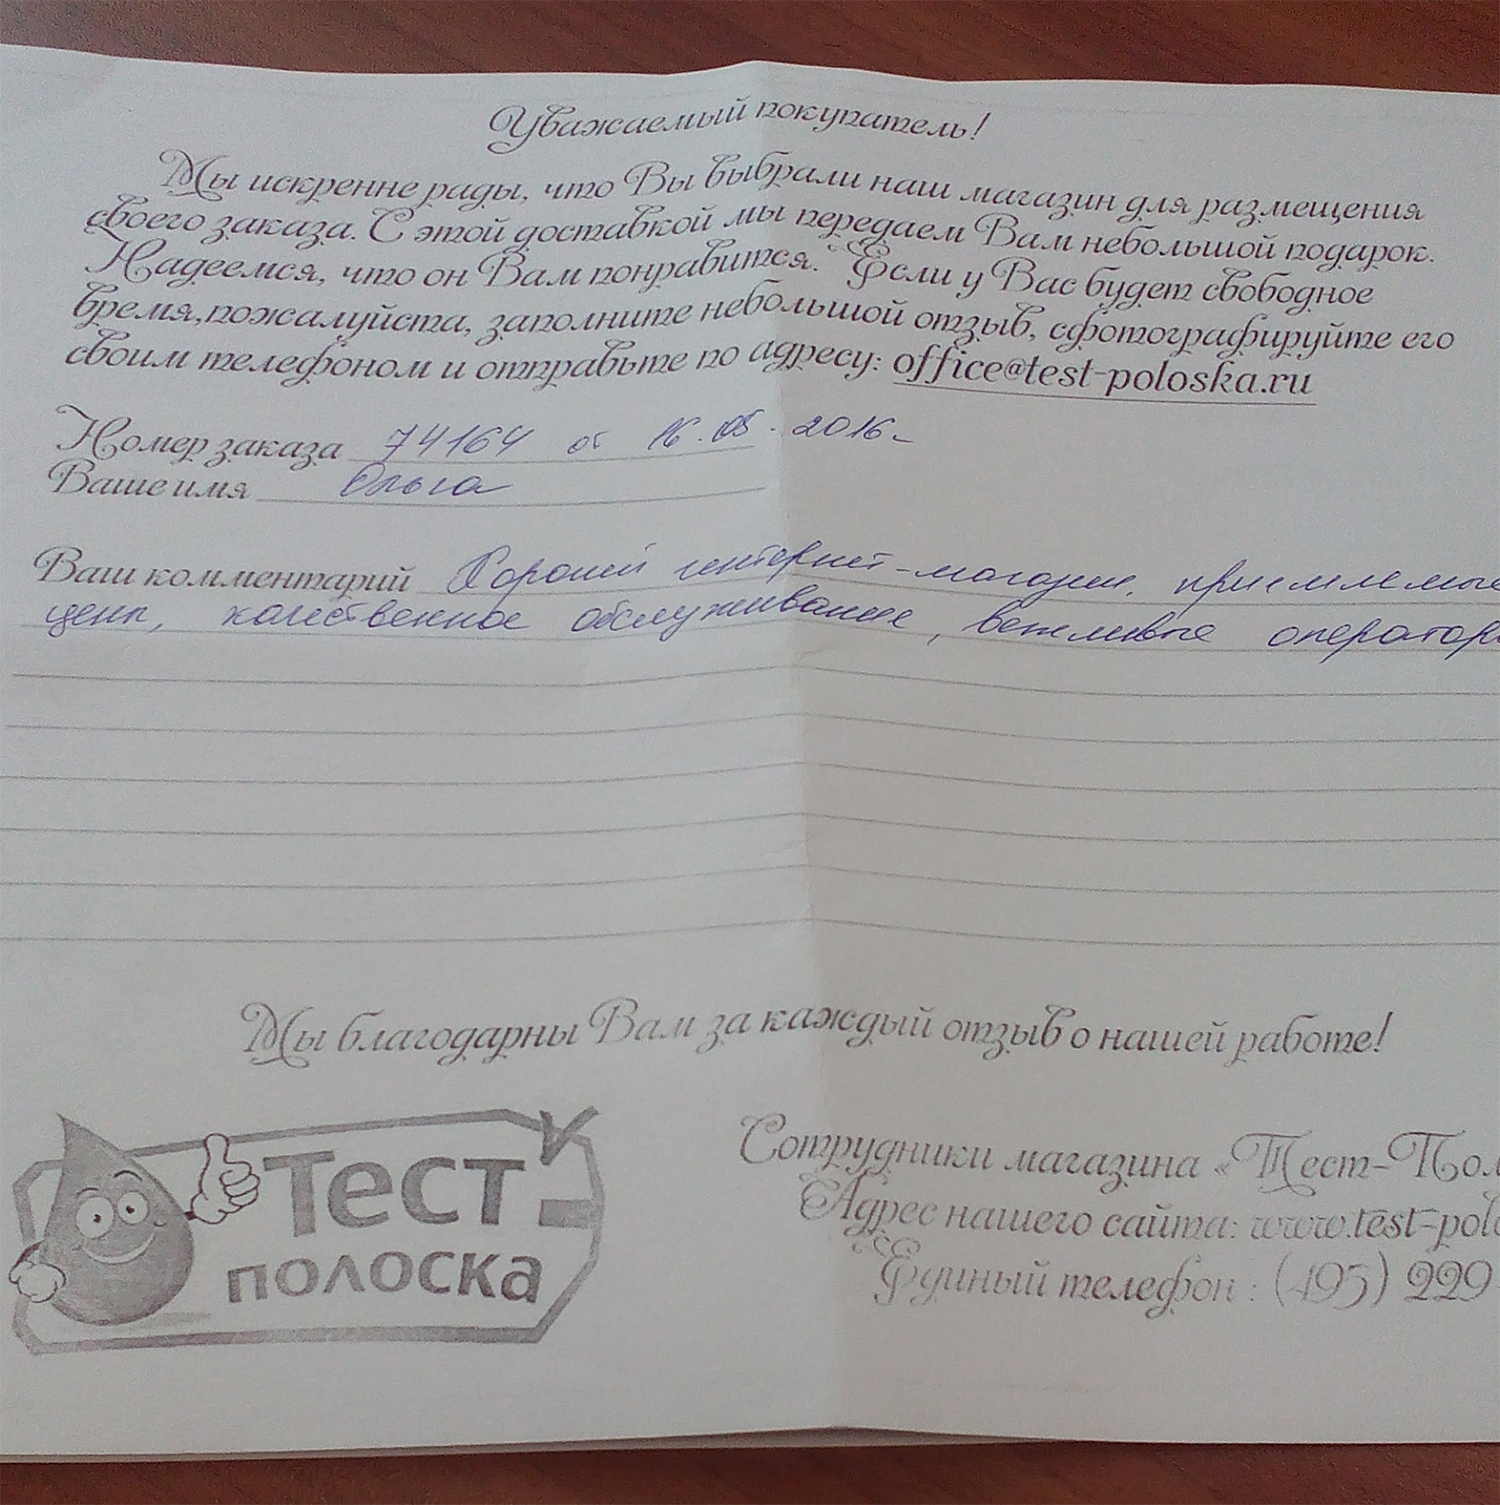 Уважаемый покупатель!
Мы искренне рады, что Вы выбрали наш магазин для размещения
своего заказа. С этой доставкой мы передаем Вам небольшой подарок.
Надеемся, что он Вам понравится. Если у Вас будет свободное
время, пожалуйста, заполните небольшой отзыв, сфотографируйте его
своим телефоном и отправьте по адресу: office@test-poloska.ru
Номер заказа 74164 от 16.05.2016
Ваше имя Ольга
Ваш комментарий Хороший интернет-магазин, приемлемые
цены, качественное обслуживание, вежливые оператор
Мы благодарны Вам за каждый отзыв о нашей работе!
Тест
полоска
Сотрудники магазина «Тест-Пол
Адрес нашего сайта: www.test-polo
Единый телефон : (495) 229